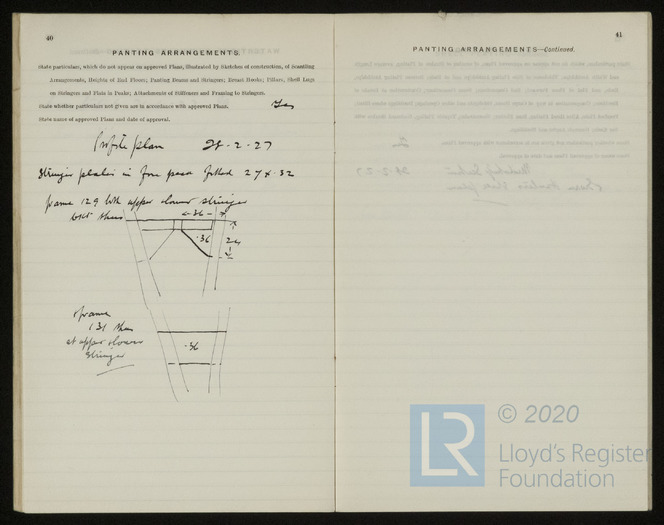 40
PANTING ARRANGEMENTS.
State particulars, which do not appear on approved Plans, illustrated by Sketches of construction, of Scantling
Arrangements, Heights of End Floors; Panting Beams and Stringers; Breast Hooks; Pillars, Shell Lugs
on Stringers and Flats in Peaks; Attachments of Stiffeners and Framing to Stringers.
State whether particulars not given are in accordance with approved Plans. Yes
State name of approved Plans and date of approval.
Profile plan 28-2-27
Stringer plates in fore peak fitted 27 x .32
frame 129 both upper & lower stringer
bkt thus
36
.36
24
frame
131 thus
at upper & lower
Stringer
.36
41
PANTING ARRANGEMENTS—Continued.
LR
© 2020
Lloyd's Register
Foundation